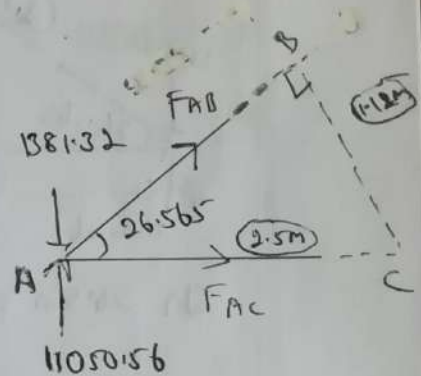 B
FAB
1.12M
1381.32
26.565
2.5M
A
FAC
C
11050.56